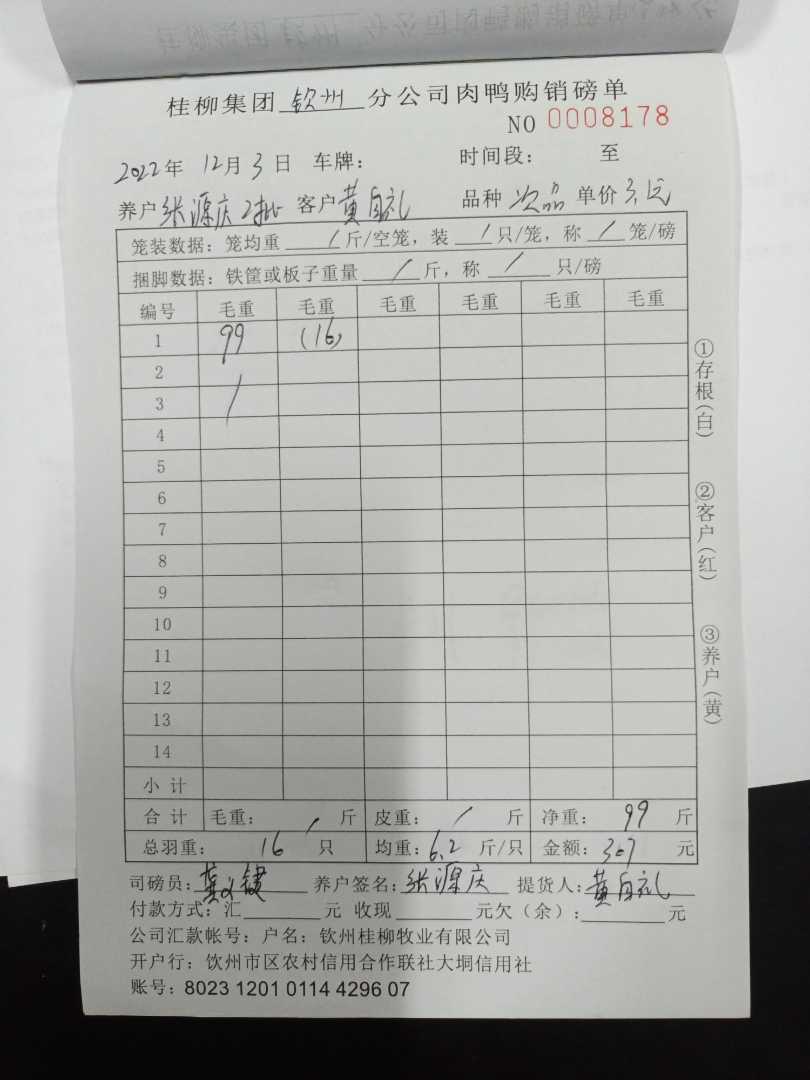 桂柳集团 钦州 分公司肉鸭购销磅单
NO 0008178
2022年 12月 3 日 车牌： 时间段： 至
养户 张源庆2批 客户 黄自礼 品种 次品 单价 3.元
笼装数据：笼均重 / 斤/空笼，装 / 只/笼，称 / 笼/磅
捆脚数据：铁筐或板子重量 / 斤，称 / 只/磅
编号 毛重 毛重 毛重 毛重 毛重 毛重
1 99 (16)
2
3 /
4
5
6
7
8
9
10
11
12
13
14
小 计
合 计 毛重： / 斤 皮重： / 斤 净重： 99 斤
总羽重： 16 只 均重：6.2 斤/只 金额：307 元
司磅员： 养户签名：张源庆 提货人：黄自礼
付款方式：汇 元 收现 元欠（余）： 元
公司汇款帐号：户名：钦州桂柳牧业有限公司
开户行：饮州市区农村信用合作联社大垌信用社
账号：8023 1201 0114 4296 07
①存根(白)
②客户(红)
③养户(黄)